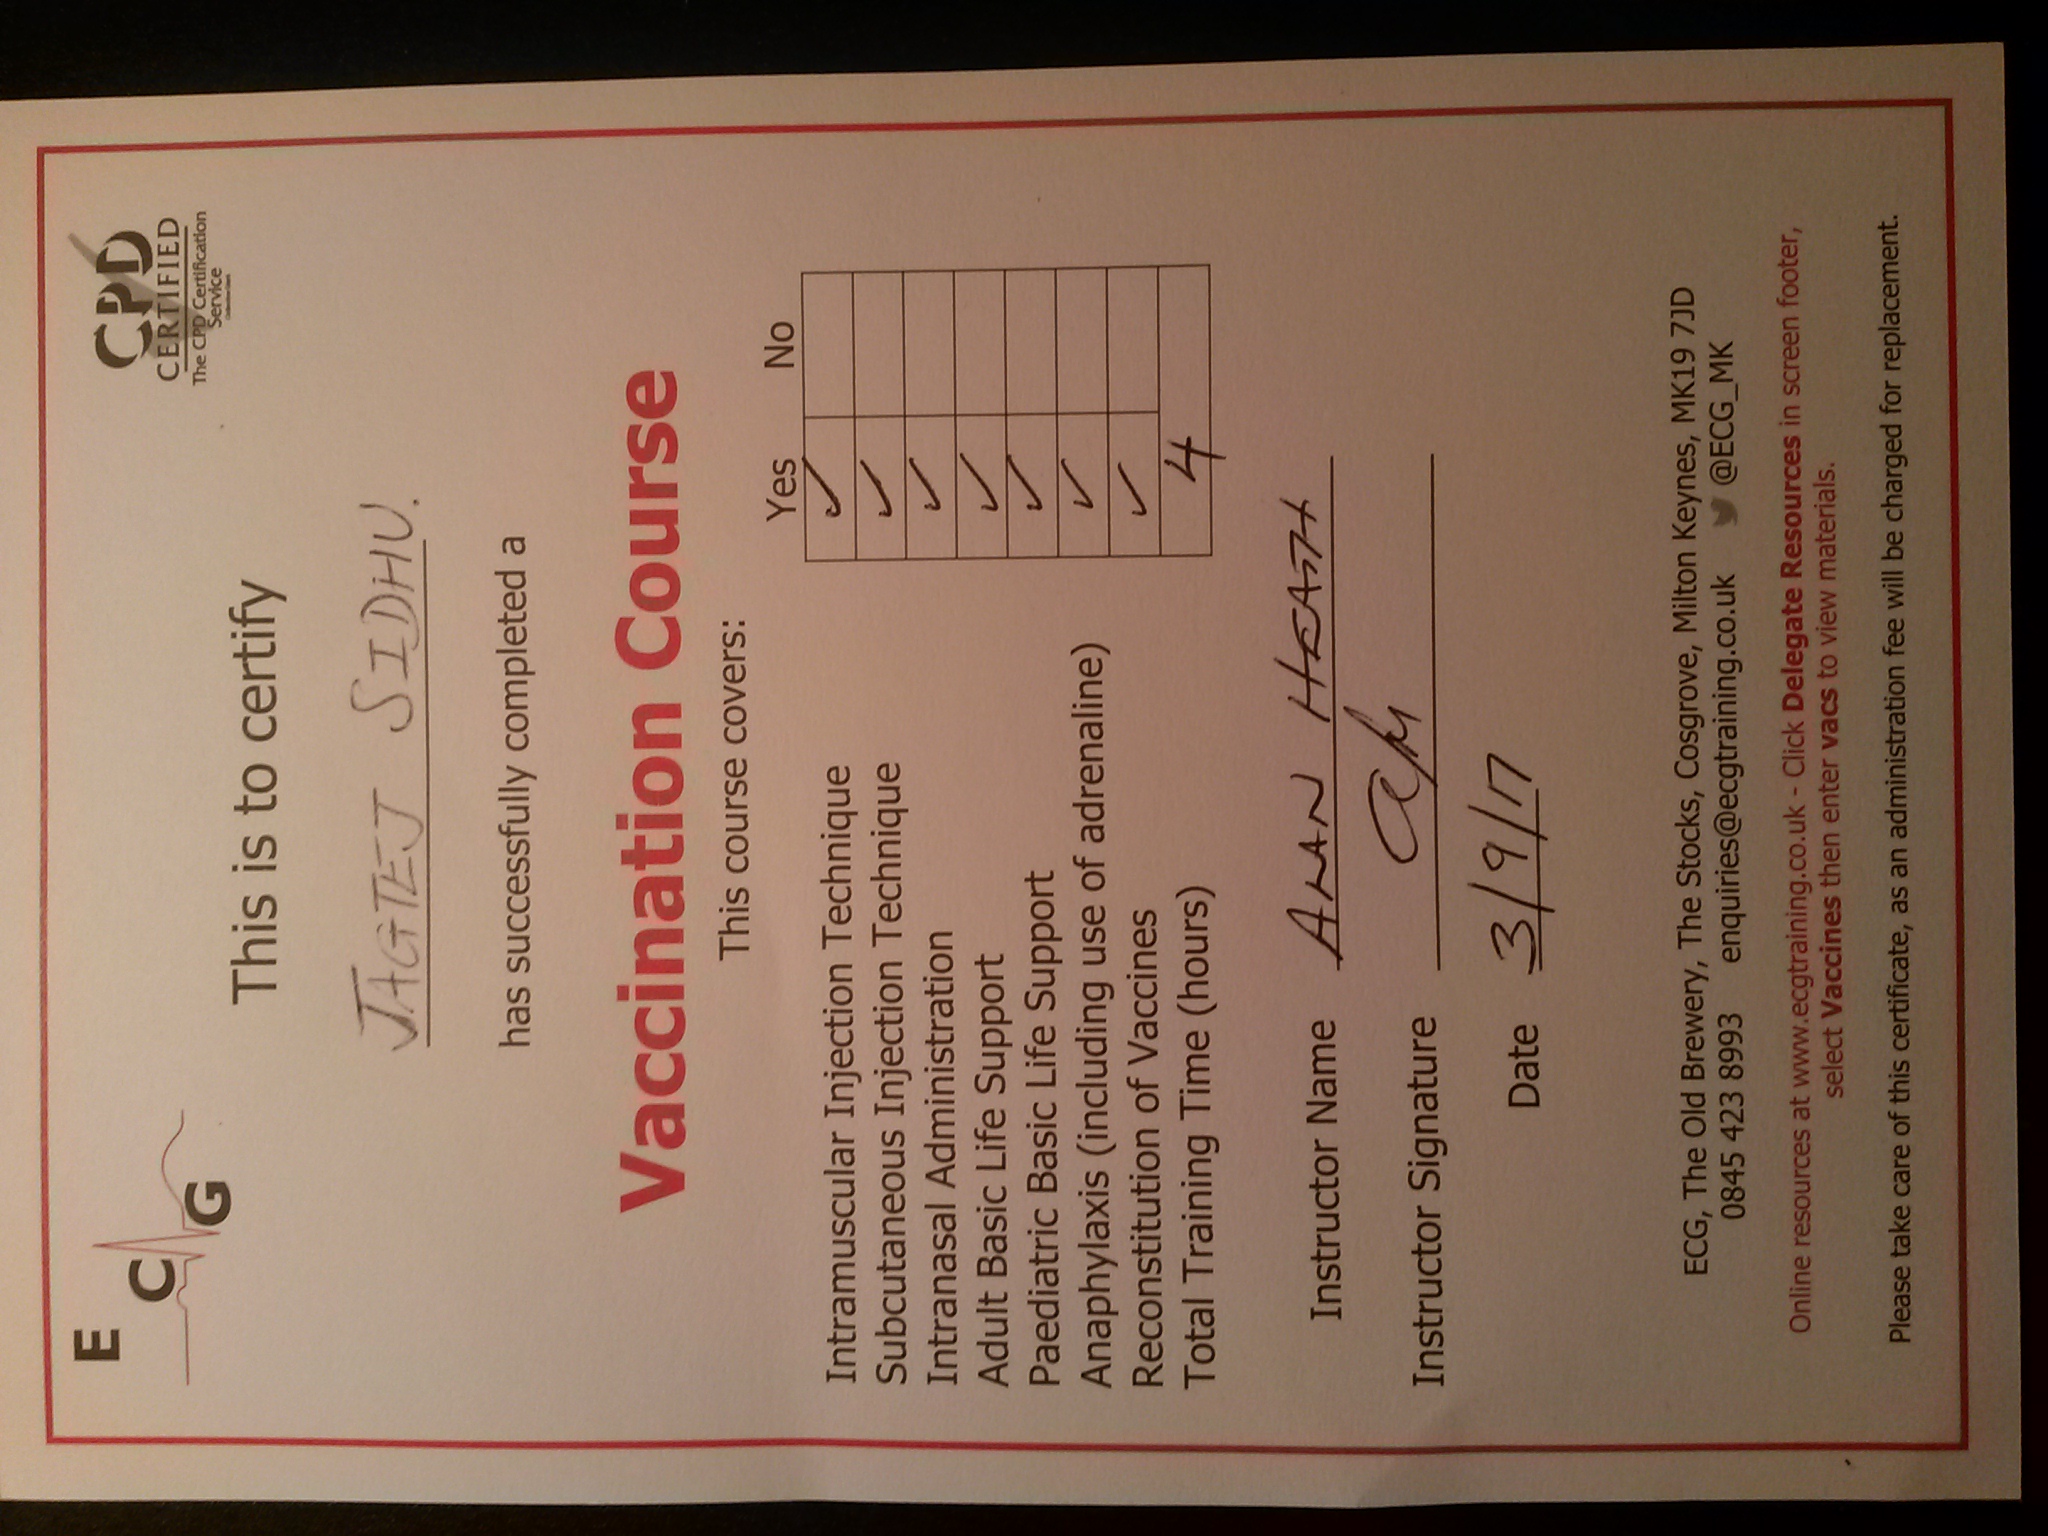 E
C
G
CPD
CERTIFIED
The CPD Certification
Service
This is to certify
JAGTEJ SIDHU.
has successfully completed a
Vaccination Course
This course covers:
Yes No
Intramuscular Injection Technique
Subcutaneous Injection Technique
Intranasal Administration
Adult Basic Life Support
Paediatric Basic Life Support
Anaphylaxis (including use of adrenaline)
Reconstitution of Vaccines
Total Training Time (hours) 4
Instructor Name ALAN HEATH
Instructor Signature
Date 3/9/17
ECG, The Old Brewery, The Stocks, Cosgrove, Milton Keynes, MK19 7JD
0845 423 8993 enquiries@ecgtraining.co.uk @ECG_MK
Online resources at www.ecgtraining.co.uk - Click Delegate Resources in screen footer,
select Vaccines then enter vacs to view materials.
Please take care of this certificate, as an administration fee will be charged for replacement.